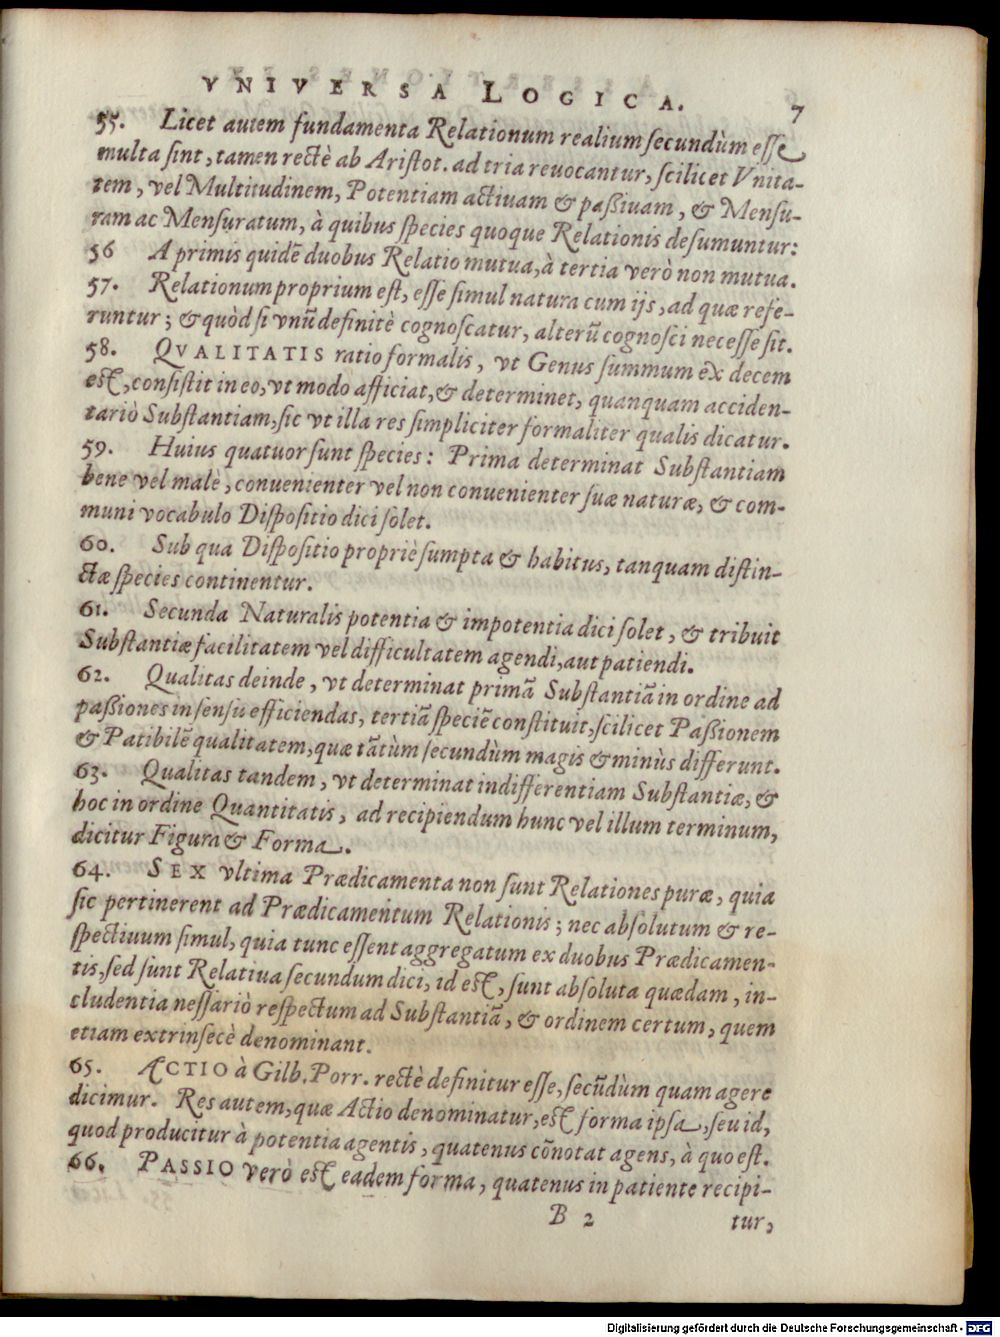 VNIVERSA LOGICA. 7
55. Licet autem fundamenta Relationum realium secundùm esse
multa sint, tamen rectè ab Aristot. ad tria reuocantur, scilicet Vnita-
tem, vel Multitudinem, Potentiam actiuam & passiuam, & Mensu-
ram ac Mensuratum, à quibus species quoque Relationis desumuntur:
56 A primis quidē duobus Relatio mutua, à tertia verò non mutua.
57. Relationum proprium est, esse simul natura cum ijs, ad quæ refe-
runtur; & quòd si vnū definitè cognoscatur, alterū cognosci necesse sit.
58. QVALITATIS ratio formalis, vt Genus summum ex decem
est, consistit in eo, vt modò afficiat, & determinet, quanquam acciden-
tariò Substantiam, sic vt illa res simpliciter formaliter qualis dicatur.
59. Huius quatuor sunt species: Prima determinat Substantiam
bene vel malè, conuenienter vel non conuenienter suæ naturæ, & com-
muni vocabulo Dispositio dici solet.
60. Sub qua Dispositio propriè sumpta & habitus, tanquam distin-
ctæ species continentur.
61. Secunda Naturalis potentia & impotentia dici solet, & tribuit
Substantiæ facilitatem vel difficultatem agendi, aut patiendi.
62. Qualitas deinde, vt determinat primā Substantiā in ordine ad
passiones in sensu efficiendas, tertiā speciē constituit, scilicet Passionem
& Patibilē qualitatem, quæ tātùm secundùm magis & minùs differunt.
63. Qualitas tandem, vt determinat indifferentiam Substantiæ, &
hoc in ordine Quantitatis, ad recipiendum hunc vel illum terminum,
dicitur Figura & Forma.
64. SEX vltima Prædicamenta non sunt Relationes puræ, quia
sic pertinerent ad Prædicamentum Relationis; nec absolutum & re-
spectiuum simul, quia tunc essent aggregatum ex duobus Prædicamen-
tis, sed sunt Relatiua secundum dici, id est, sunt absoluta quædam, in-
cludentia nessariò respectum ad Substantiā, & ordinem certum, quem
etiam extrinsecè denominant.
65. ACTIO à Gilb. Porr. rectè definitur esse, secūdùm quam agere
dicimur. Res autem, quæ Actio denominatur, est forma ipsa, seu id,
quod producitur à potentia agentis, quatenus cōnotat agens, à quo est.
66. PASSIO verò est eadem forma, quatenus in patiente recipi-
B 2 tur,
Digitalisierung gefördert durch die Deutsche Forschungsgemeinschaft - DFG